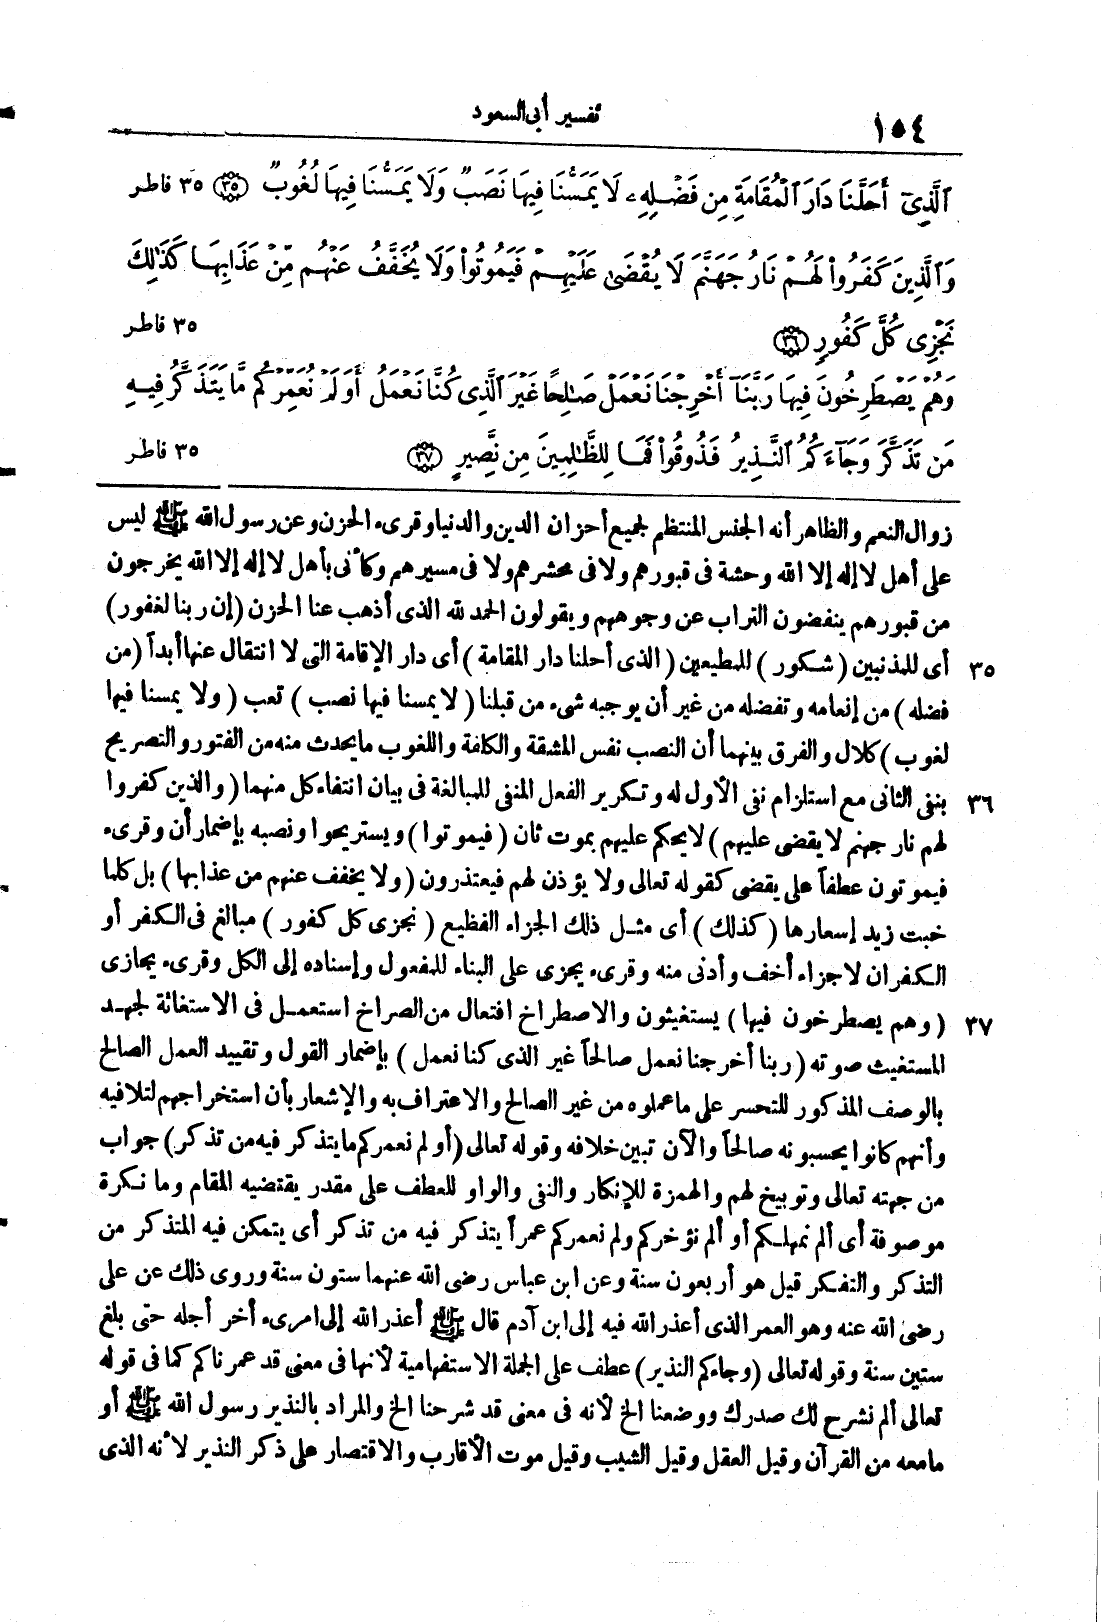 ١٥٤ تفسير أبى السعود
ٱلَّذِىٓ أَحَلَّنَا دَارَ ٱلْمُقَامَةِ مِن فَضْلِهِۦ لَا يَمَسُّنَا فِيهَا نَصَبٌ وَلَا يَمَسُّنَا فِيهَا لُغُوبٌ ﴿٣٥﴾ ٣٥ فاطر
وَٱلَّذِينَ كَفَرُوا۟ لَهُمْ نَارُ جَهَنَّمَ لَا يُقْضَىٰ عَلَيْهِمْ فَيَمُوتُوا۟ وَلَا يُخَفَّفُ عَنْهُم مِّنْ عَذَابِهَا كَذَٰلِكَ
نَجْزِى كُلَّ كَفُورٍ ﴿٣٦﴾ ٣٥ فاطر
وَهُمْ يَصْطَرِخُونَ فِيهَا رَبَّنَآ أَخْرِجْنَا نَعْمَلْ صَٰلِحًا غَيْرَ ٱلَّذِى كُنَّا نَعْمَلُ أَوَلَمْ نُعَمِّرْكُم مَّا يَتَذَكَّرُ فِيهِ
مَن تَذَكَّرَ وَجَآءَكُمُ ٱلنَّذِيرُ فَذُوقُوا۟ فَمَا لِلظَّٰلِمِينَ مِن نَّصِيرٍ ﴿٣٧﴾ ٣٥ فاطر
زوال النعم والظاهر أنه الجنس المنتظم لجميع أحزان الدين والدنيا وقرىء الحزن وعن رسول الله ﷺ ليس
على أهل لا إله إلا الله وحشة فى قبورهم ولا فى محشرهم ولا فى مسيرهم وكأنى بأهل لا إله إلا الله يخرجون
من قبورهم ينفضون التراب عن وجوههم ويقولون الحمد لله الذى أذهب عنا الحزن (إن ربنا لغفور)
٣٥ أى للمذنبين (شكور) للمطيعين (الذى أحلنا دار المقامة) أى دار الإقامة التى لا انتقال عنها أبداً (من
فضله) من إنعامه وتفضله من غير أن يوجبه شىء من قبلنا (لا يمسنا فيها نصب) تعب (ولا يمسنا فيها
لغوب) كلال والفرق بينهما أن النصب نفس المشقة والكلفة واللغوب ما يحدث منه من الفتور والتصريح
٣٦ بنفى الثانى مع استلزام نفى الأول له وتكرير الفعل المنفى للمبالغة فى بيان انتفاء كل منهما (والذين كفروا
لهم نار جهنم لا يقضى عليهم) لا يحكم عليهم بموت ثان (فيموتوا) ويستريحوا ونصبه بإضمار أن وقرىء
فيموتون عطفاً على يقضى كقوله تعالى ولا يؤذن لهم فيعتذرون (ولا يخفف عنهم من عذابها) بل كلما
خبت زيد إسعارها (كذلك) أى مثل ذلك الجزاء الفظيع (نجزى كل كفور) مبالغ فى الكفر أو
الكفران لا جزاء أخف وأدنى منه وقرىء يجزى على البناء للمفعول وإسناده إلى الكل وقرىء يجازى
٣٧ (وهم يصطرخون فيها) يستغيثون والاصطراخ افتعال من الصراخ استعمل فى الاستغاثة لجهد
المستغيث صوته (ربنا أخرجنا نعمل صالحاً غير الذى كنا نعمل) بإضمار القول وتقييد العمل الصالح
بالوصف المذكور للتحسر على ما عملوه من غير الصالح والاعتراف به والإشعار بأن استخراجهم لتلافيه
وأنهم كانوا يحسبونه صالحاً والآن تبين خلافه وقوله تعالى (أو لم نعمركم ما يتذكر فيه من تذكر) جواب
من جهته تعالى وتوبيخ لهم والهمزة للإنكار والنفى والواو للعطف على مقدر يقتضيه المقام وما نكرة
موصوفة أى ألم نمهلكم أو ألم نؤخركم ولم نعمركم عمراً يتذكر فيه من تذكر أى يتمكن فيه المتذكر من
التذكر والتفكر قيل هو أربعون سنة وعن ابن عباس رضى الله عنهما ستون سنة وروى ذلك عن على
رضى الله عنه وهو العمر الذى أعذر الله فيه إلى ابن آدم قال ﷺ أعذر الله إلى امرىء أخر أجله حتى بلغ
ستين سنة وقوله تعالى (وجاءكم النذير) عطف على الجملة الاستفهامية لأنها فى معنى قد عمرناكم كما فى قوله
تعالى ألم نشرح لك صدرك ووضعنا الخ لأنه فى معنى قد شرحنا الخ والمراد بالنذير رسول الله ﷺ أو
ما معه من القرآن وقيل العقل وقيل الشيب وقيل موت الأقارب والاقتصار على ذكر النذير لأنه الذى